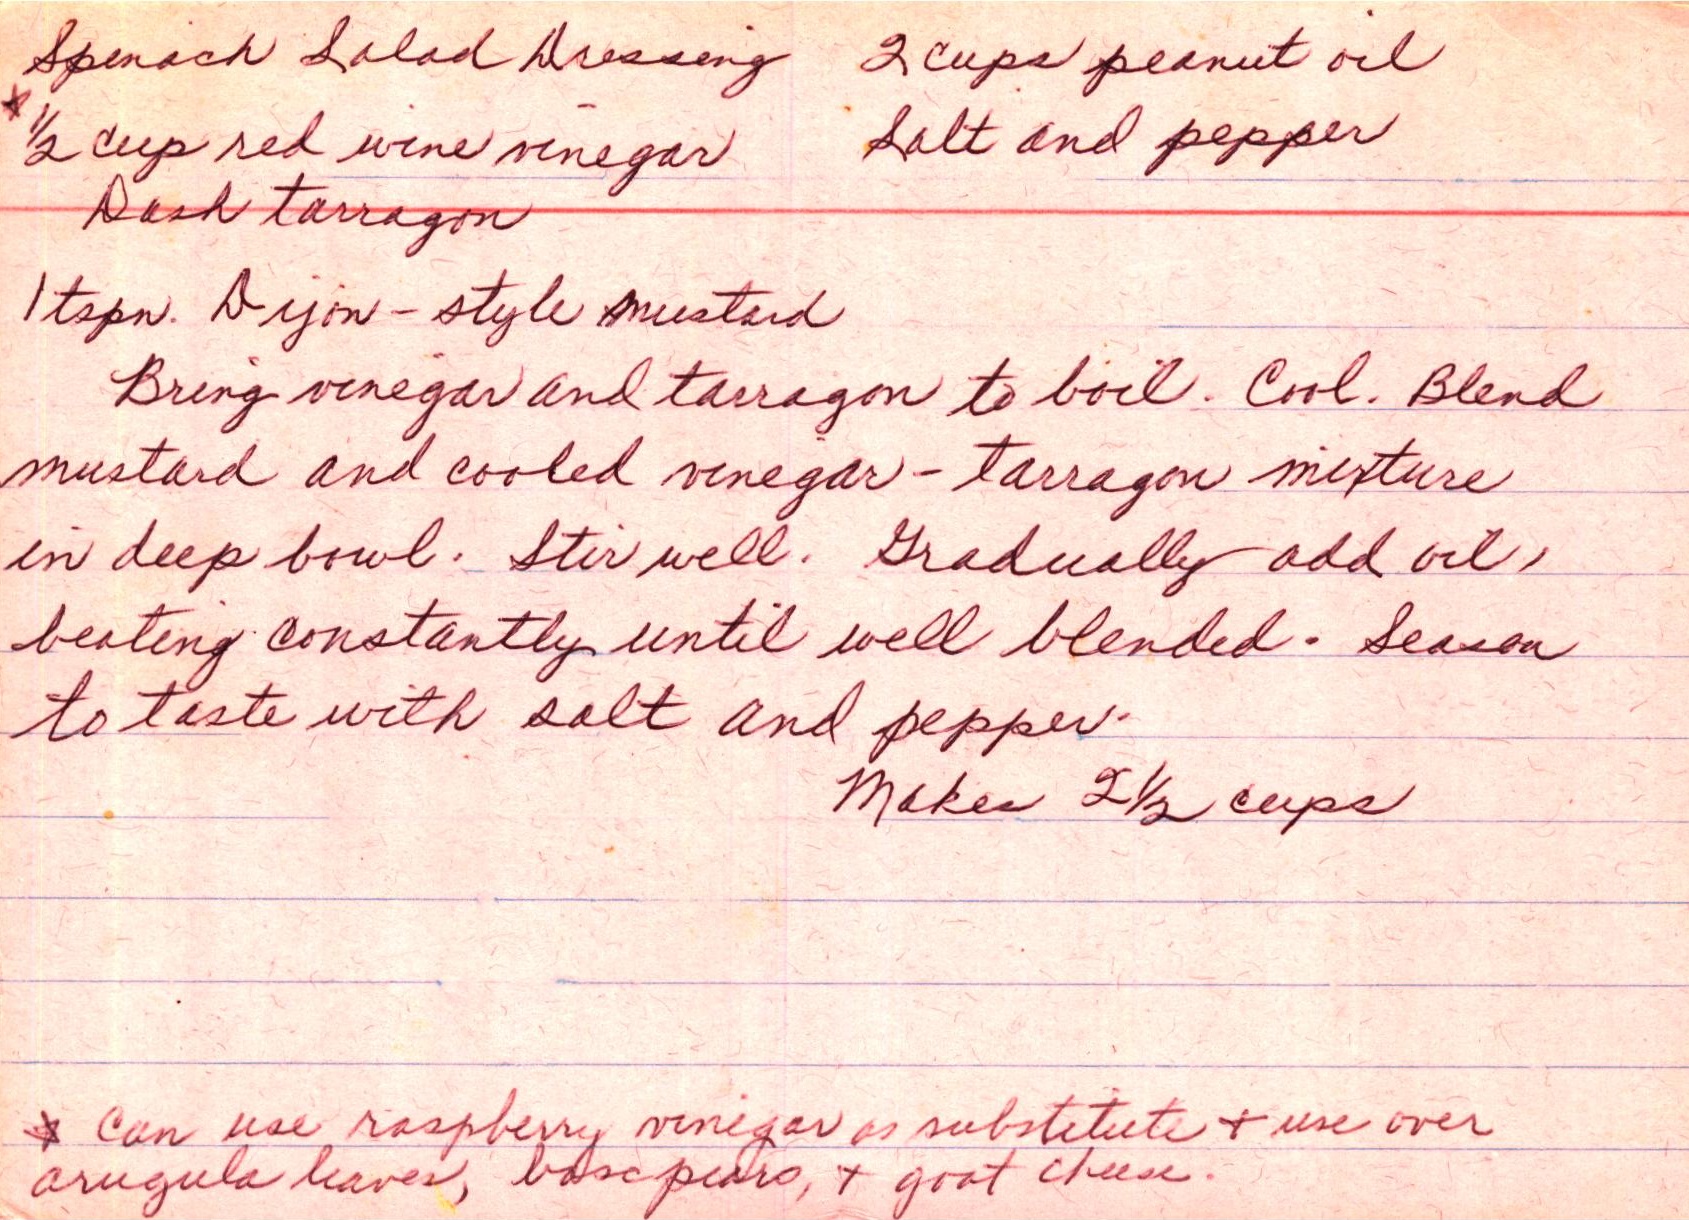 Spinach Salad Dressing
* 1/2 cup red wine vinegar
Dash tarragon
1 tspn. Dijon - style mustard
2 cups peanut oil
Salt and pepper
Bring vinegar and tarragon to boil. Cool. Blend
mustard and cooled vinegar - tarragon mixture
in deep bowl. Stir well. Gradually add oil,
beating constantly until well blended. Season
to taste with salt and pepper.
Makes 2 1/2 cups
* Can use raspberry vinegar as substitute + use over
arugula leaves, bosc pears, + goat cheese.